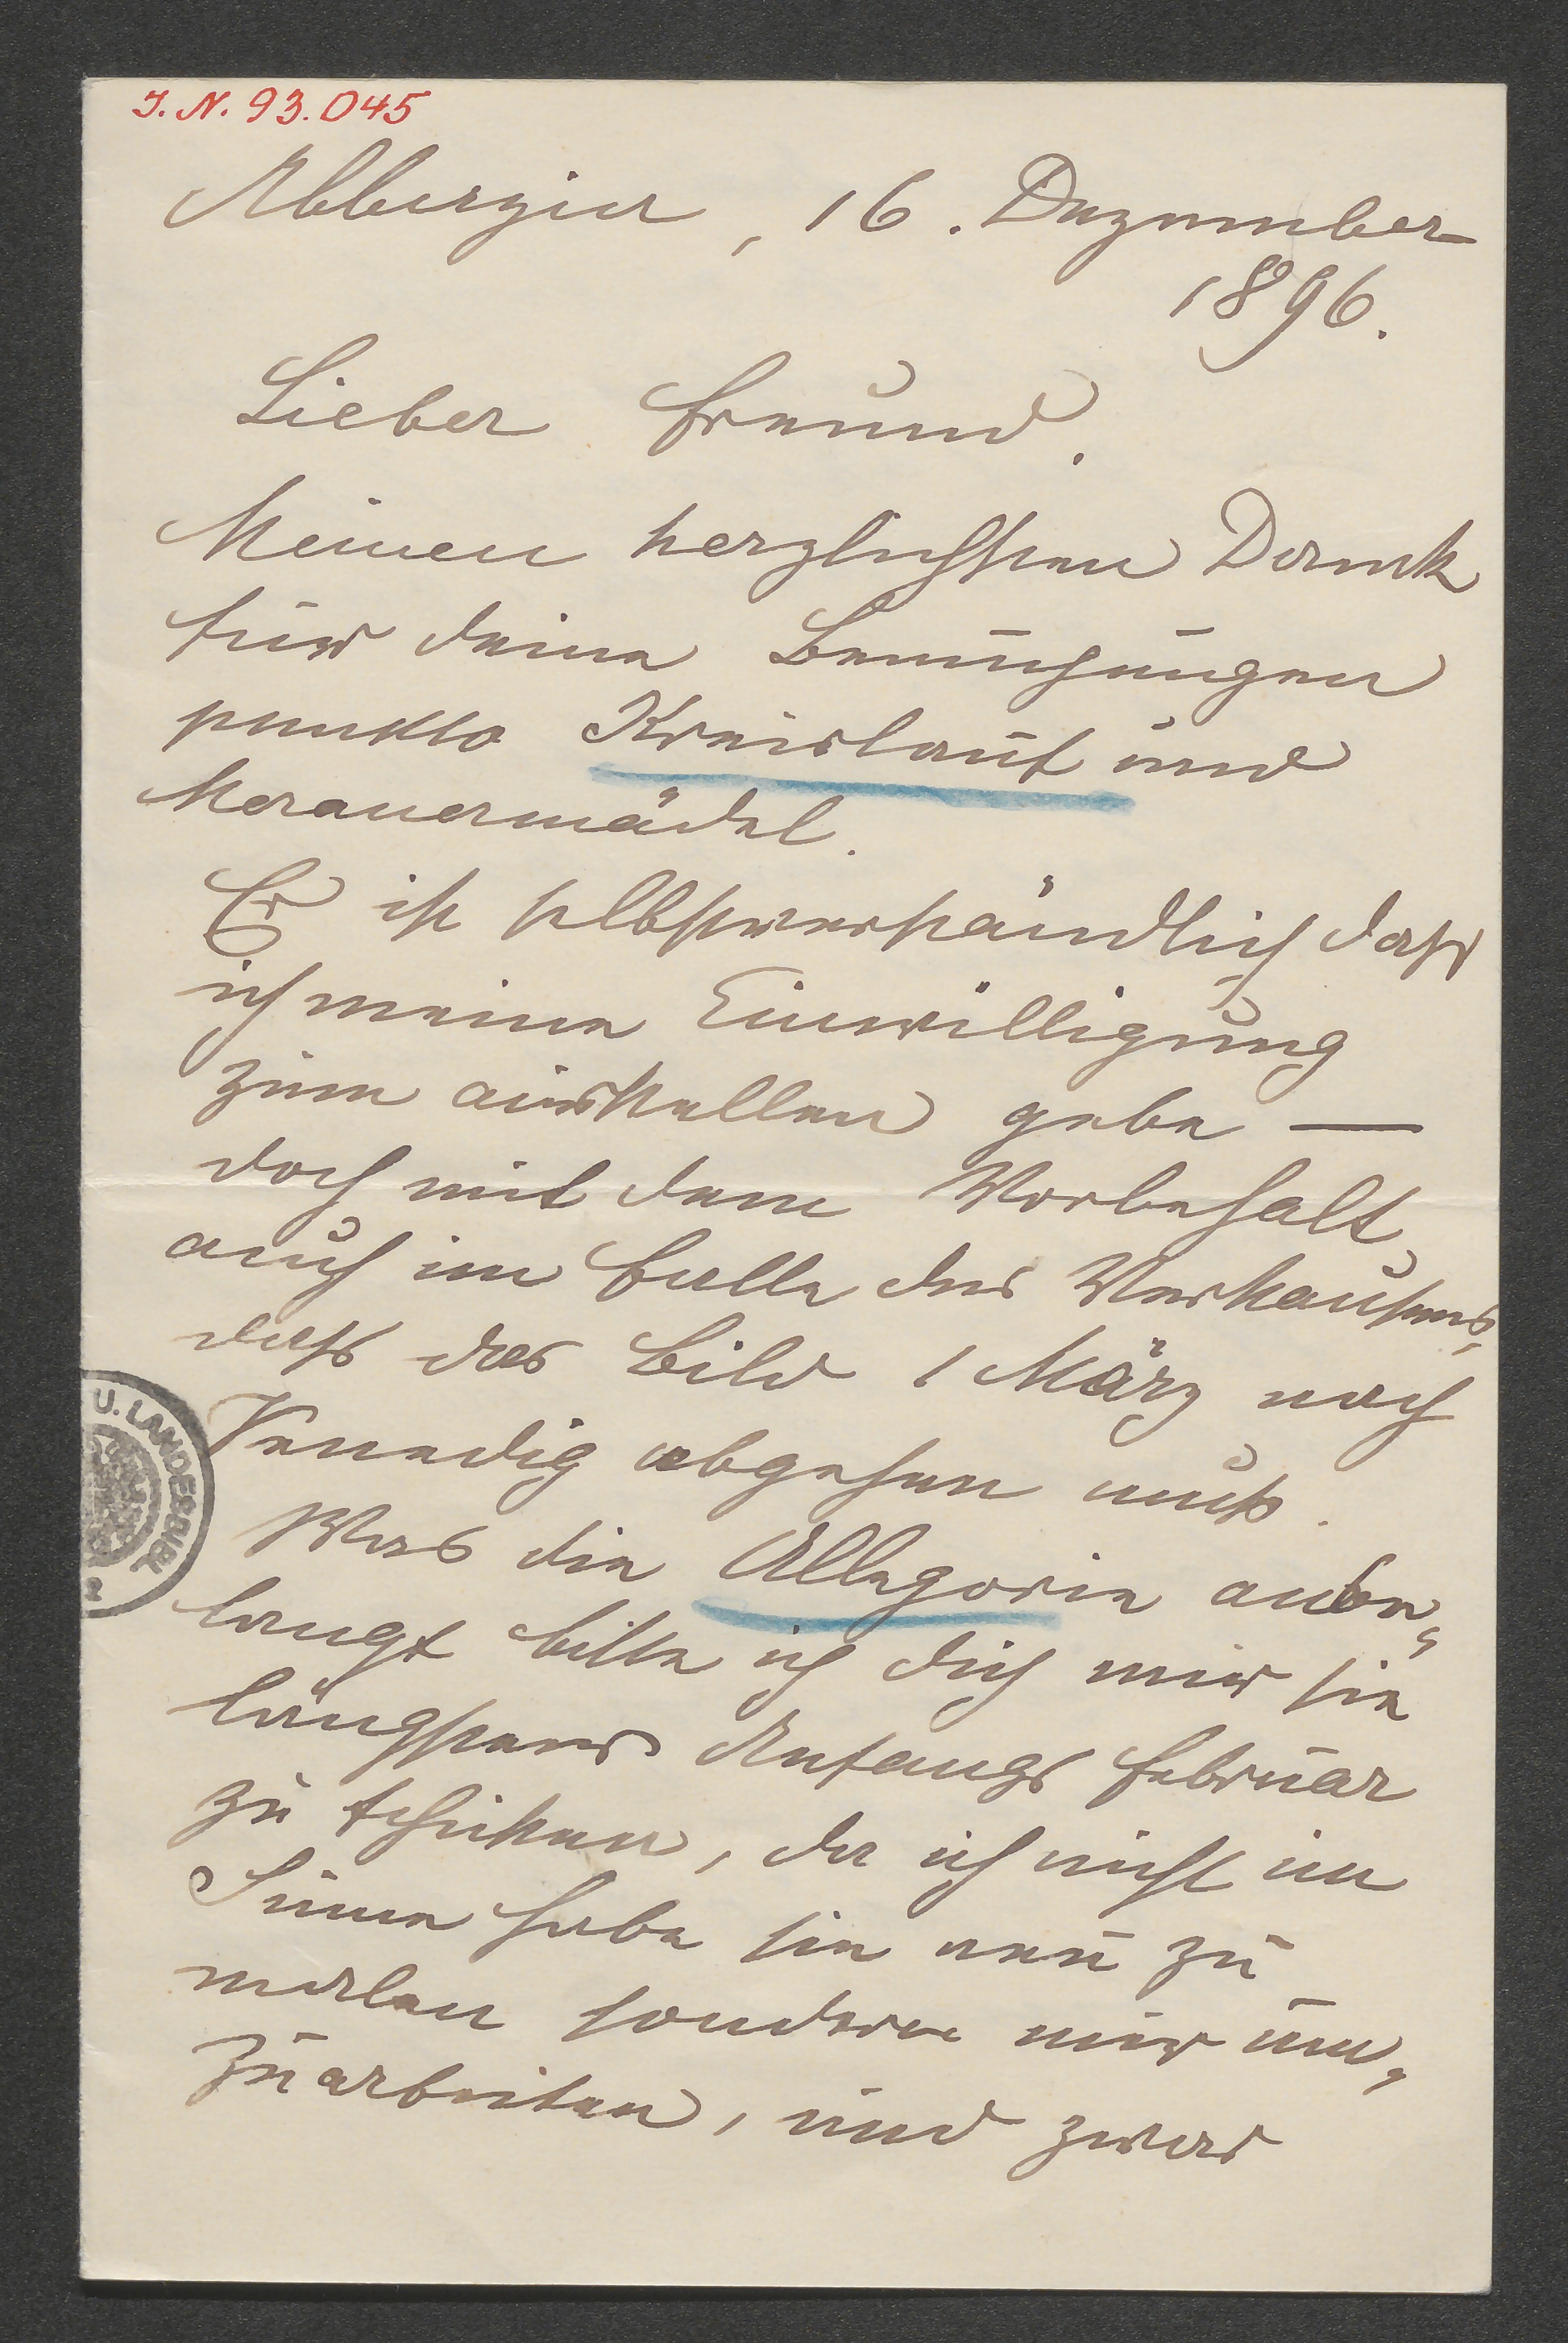 I. N. 93.045
Abbazia, 16. Dezember
1896.
Lieber Freund.
Meinen herzlichsten Dank
für deine Bemühungen
punkto Kreislauf und
Meranermädel.
Es ist selbstverständlich dass
ich meine Einwilligung
zum ausstellen gebe —
doch mit dem Vorbehalt,
auch im Falle des Verkaufens,
dass das Bild 1 März nach
Venedig abgehen muß.
Was die Allegorie anbe„
langt bitte ich dich mir sie
längstens Anfangs Februar
zu schicken, da ich nicht im
Sinne habe sie neu zu
malen sondern nur um„
zuarbeiten, und zwar
U. LANDESBIBL